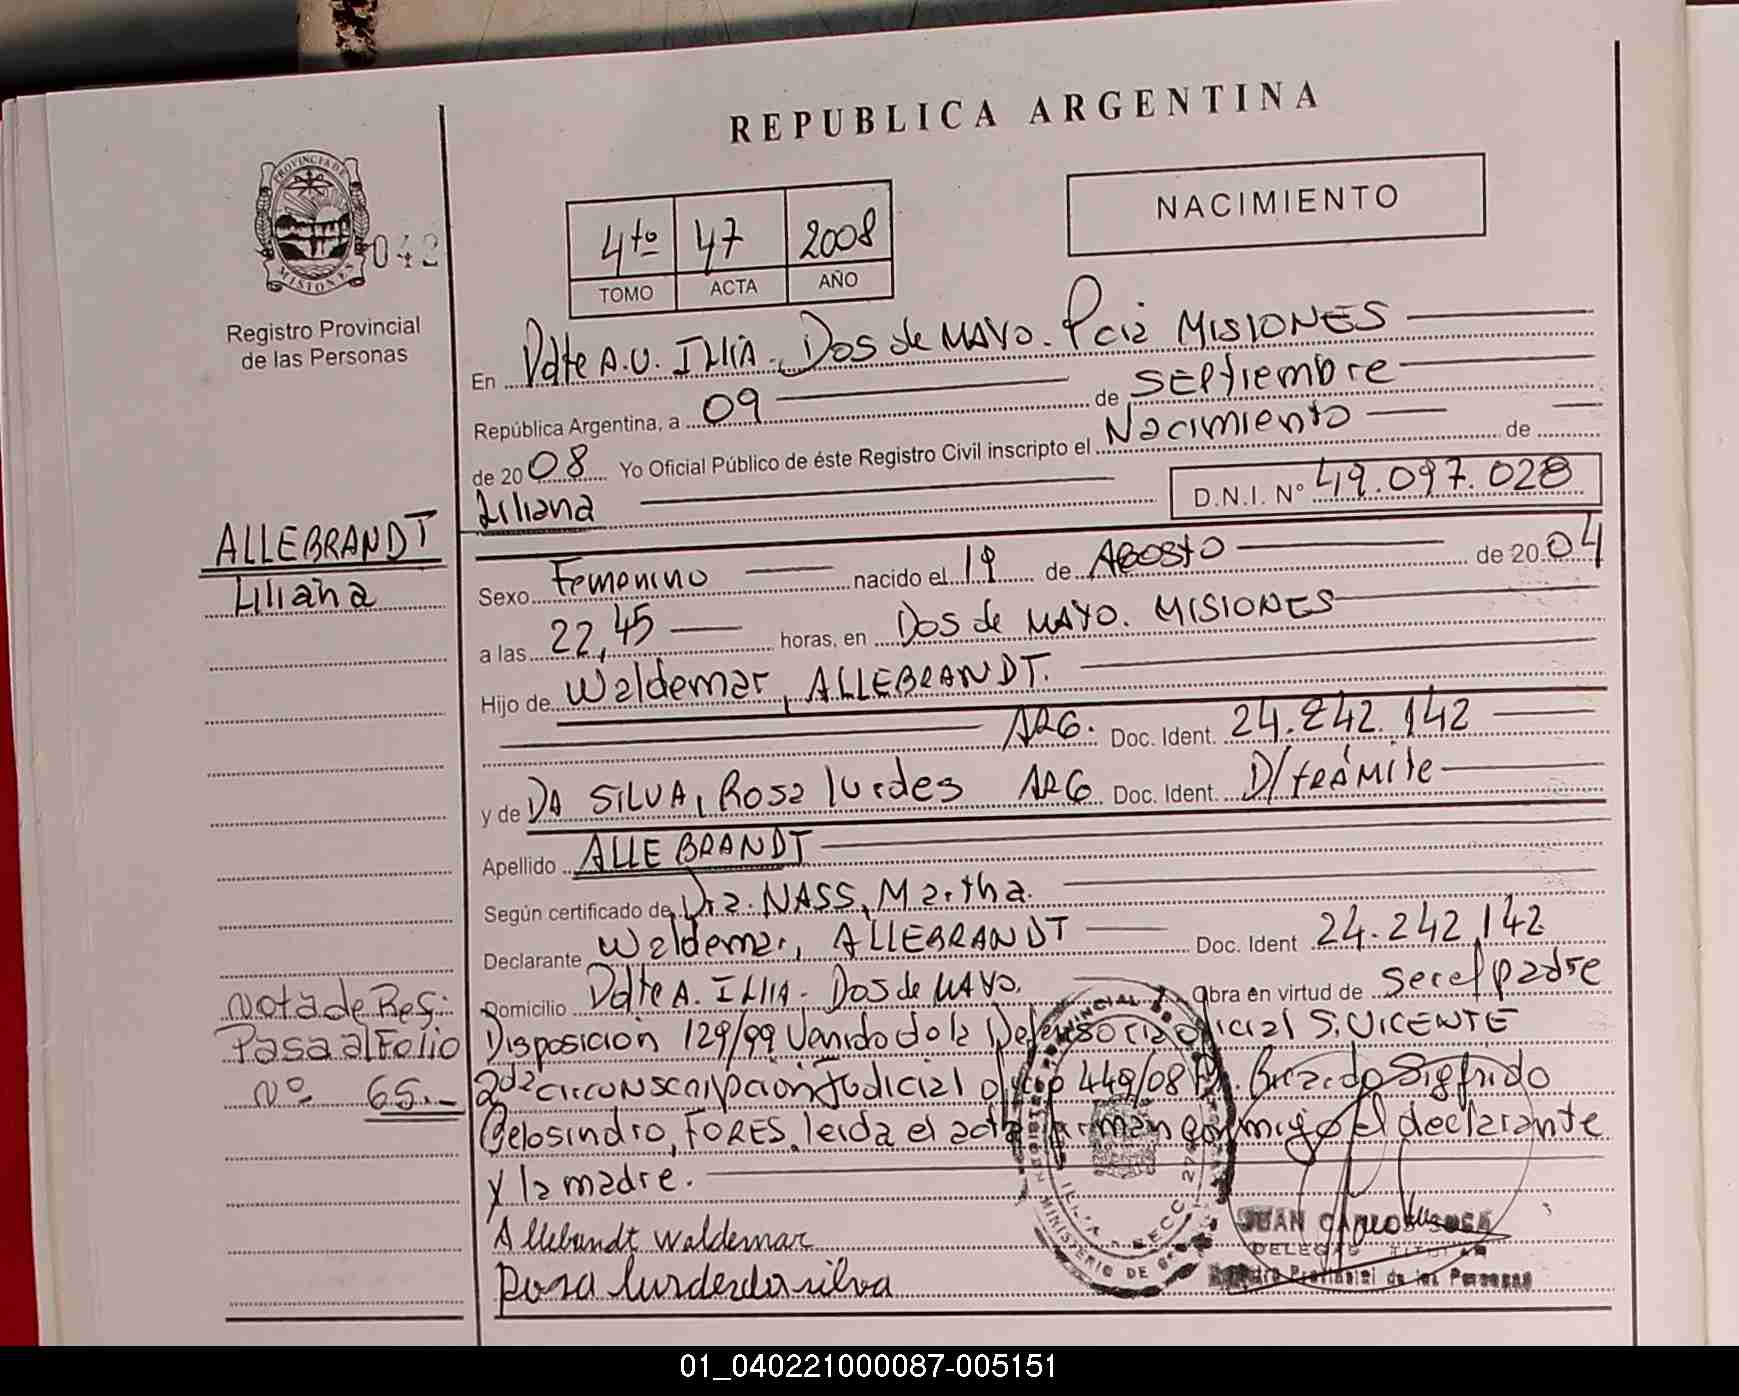 REPUBLICA ARGENTINA
NACIMIENTO
4to 47 2008
TOMO ACTA AÑO
PROVINCIA DE
MISIONES
042
Registro Provincial
de las Personas
En Pdte A.U. ILLIA - Dos de MAYO. Pcia MISIONES
República Argentina, a 09 de septiembre
de 2008 Yo Oficial Público de éste Registro Civil inscripto el Nacimiento de
Liliana D.N.I. Nº 49.097.028
ALLEBRANDT
Liliana
Sexo Femenino nacido el 19 de Agosto de 2004
a las 22,45 horas, en Dos de MAYO. MISIONES
Hijo de Waldemar, ALLEBRANDT.
ARG. Doc. Ident. 24.242.142
y de DA SILVA, Rosa lurdes ARG Doc. Ident. D/trámite
Apellido ALLEBRANDT
Según certificado de Dra. NASS, Martha.
Declarante Waldemar, ALLEBRANDT Doc. Ident 24.242.142
Domicilio Pdte A. ILLIA - Dos de MAYO. Obra en virtud de ser el padre
Disposición 129/99 Venido de la Defensoria oficial S. VICENTE
2da circunscripción Judicial 449/08 Sigfrido
FORES, leida el acta firman conmigo el declarante
y la madre.
Nota de Ref:
Pasa al Folio
Nº 65.-
Allebrandt Waldemar
Rosa lurdes da silva
MINISTERIO DE
SECC.
JUAN CARLOS
DELEGADO TITULAR
Registro Provincial de las Personas
01_040221000087-005151